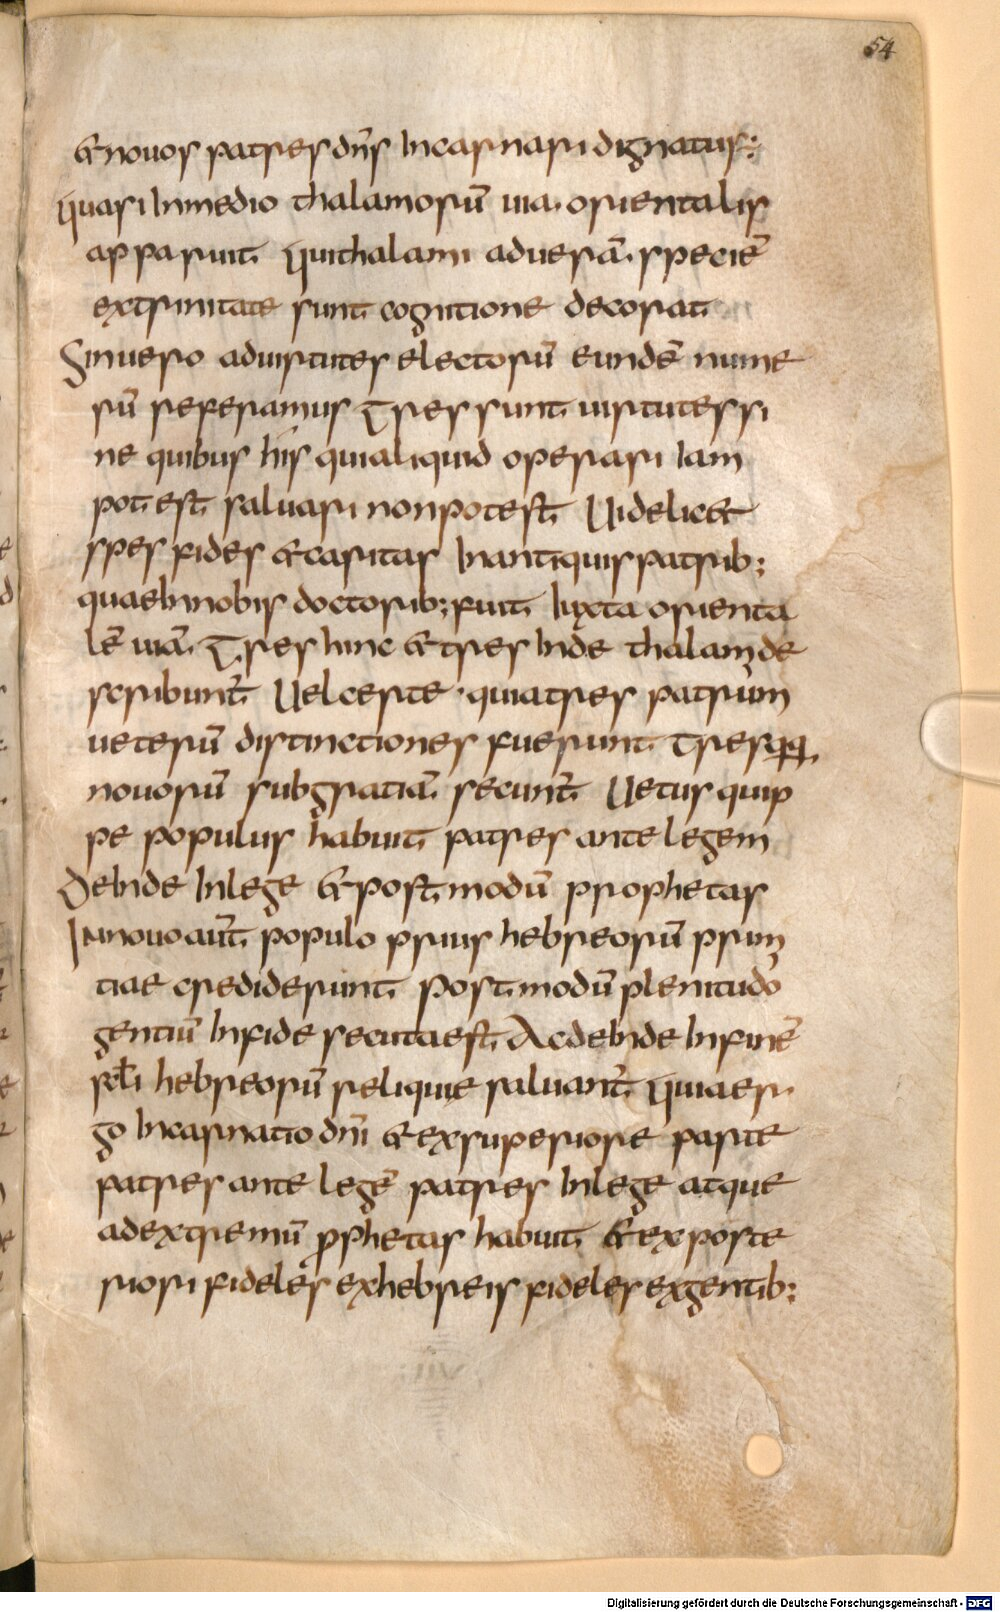 54
& novos patres dn̄s incarnari dignatus:
quasi inmedio thalamorū uia. orientalis
apparuit. Qui thalami aduerā. speciē
extrinitate sunt cognitione decorat
Sinuero aduirtutes electorū eundē nume
rū referamus Tres sunt uirtutes si
ne quibus his quialiquid operari iam
potest saluari nonpotest. Uidelic&
spes fides &caritas Inantiquis patrib;
quaeinnobis doctorib; fuit. Iuxta orienta
lē uiā. Tres hinc &tres inde thalami de
scribunt̄ Uelcerte quiatres patrum
ueterū distinctiones fuerunt Tresqq.
nouorū subgratiā. secunt̄ Uetus quip
pe populus habuit patres ante legem
Deinde inlege &postmodū prophetas
Innouo aut̄ populo prius hebreorū prim
tiae crediderunt. Postmodū plenitudo
gentiū infide secutaest. Acdeinde infinē
scl̄i hebreorū reliquie saluant̄ Quiaer
go incarnatio dn̄i &exsuperiore parte
patres ante legē patres inlege atque
adextremū prphetas habuit. &exposte
riori fideles exhebreis fideles exgentib;
Digitalisierung gefördert durch die Deutsche Forschungsgemeinschaft - DFG